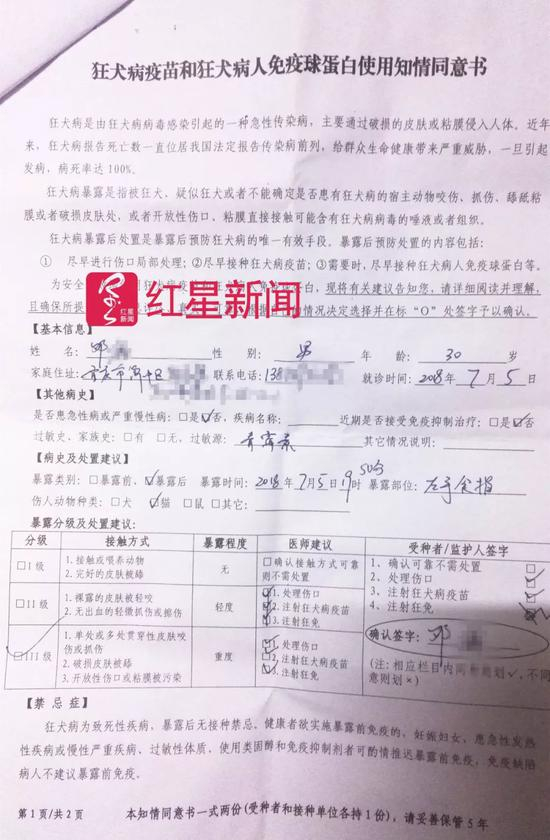 狂犬病疫苗和狂犬病人免疫球蛋白使用知情同意书
狂犬病是由狂犬病病毒感染引起的一种急性传染病，主要通过破损的皮肤或粘膜侵入人体。近年
来，狂犬病报告死亡数一直位居我国法定报告传染病前列，给群众生命健康带来严重威胁，一旦引起
发病，病死率达100%。
狂犬病暴露是指被狂犬、疑似狂犬或者不能确定是否患有狂犬病的宿主动物咬伤、抓伤、舔舐粘
膜或者破损皮肤处，或者开放性伤口、粘膜直接接触可能含有狂犬病病毒的唾液或者组织。
狂犬病暴露后处置是暴露后预防狂犬病的唯一有效手段。暴露后预防处置的内容包括：
① 尽早进行伤口局部处理；②尽早接种狂犬病疫苗；③需要时，尽早接种狂犬病人免疫球蛋白等。
为安全 免疫球蛋白，现将有关建议告知您，请详细阅读并理解，
且确保所提 情况决定选择并在标“O”处签字予以确认。
红星新闻
红星新闻
【基本信息】
姓 名：邓 性 别：男 年 龄：30 岁
家庭住址： 市 区 联系电话：138 就诊时间：2018年7月5日
【其他病史】
是否患急性病或严重慢性病：□是☑否，疾病名称： 近期是否接受免疫抑制治疗：□是☑否
过敏史、家族史：□有 □无，过敏源：青霉素 其它情况说明：
【病史及处置建议】
暴露类别：□暴露前、☑暴露后 暴露时间：2018年7月5日19时50分 暴露部位：左手食指
伤人动物种类：□犬 ☑猫 □鼠 □其它：
暴露分级及处置建议：
分级 接触方式 暴露程度 医师建议 受种者/监护人签字
□I 级 1.接触或喂养动物 2.完好的皮肤被舔 无 □确认接触方式可靠则不需处置
□II 级 1.裸露的皮肤被轻咬 2.无出血的轻微抓伤或擦伤 轻度 ☑1.处理伤口 ☑2.注射狂犬病疫苗 ☑3.注射狂免
□III 级 1.单处或多处贯穿性皮肤咬伤或抓伤 2.破损皮肤被舔 3.开放性伤口或粘膜被污染 重度 □1.处理伤口 □2.注射狂犬病疫苗 □3.注射狂免
1、确认可靠不需处置 □
2、处理伤口 ☑
3、注射狂犬病疫苗 ☑
4、注射狂免 ☑
确认签字：邓
（注：相应栏目内同意则划✓，不同
意则划×）
【禁 忌 症】
狂犬病为致死性疾病，暴露后无接种禁忌。健康者欲实施暴露前免疫的，妊娠妇女、患急性发热
性疾病或慢性严重疾病、过敏性体质、使用类固醇和免疫抑制剂者可酌情推迟暴露前免疫，免疫缺陷
病人不建议暴露前免疫。
第1页/共2页 本知情同意书一式两份（受种者和接种单位各持1份），请妥善保管5年